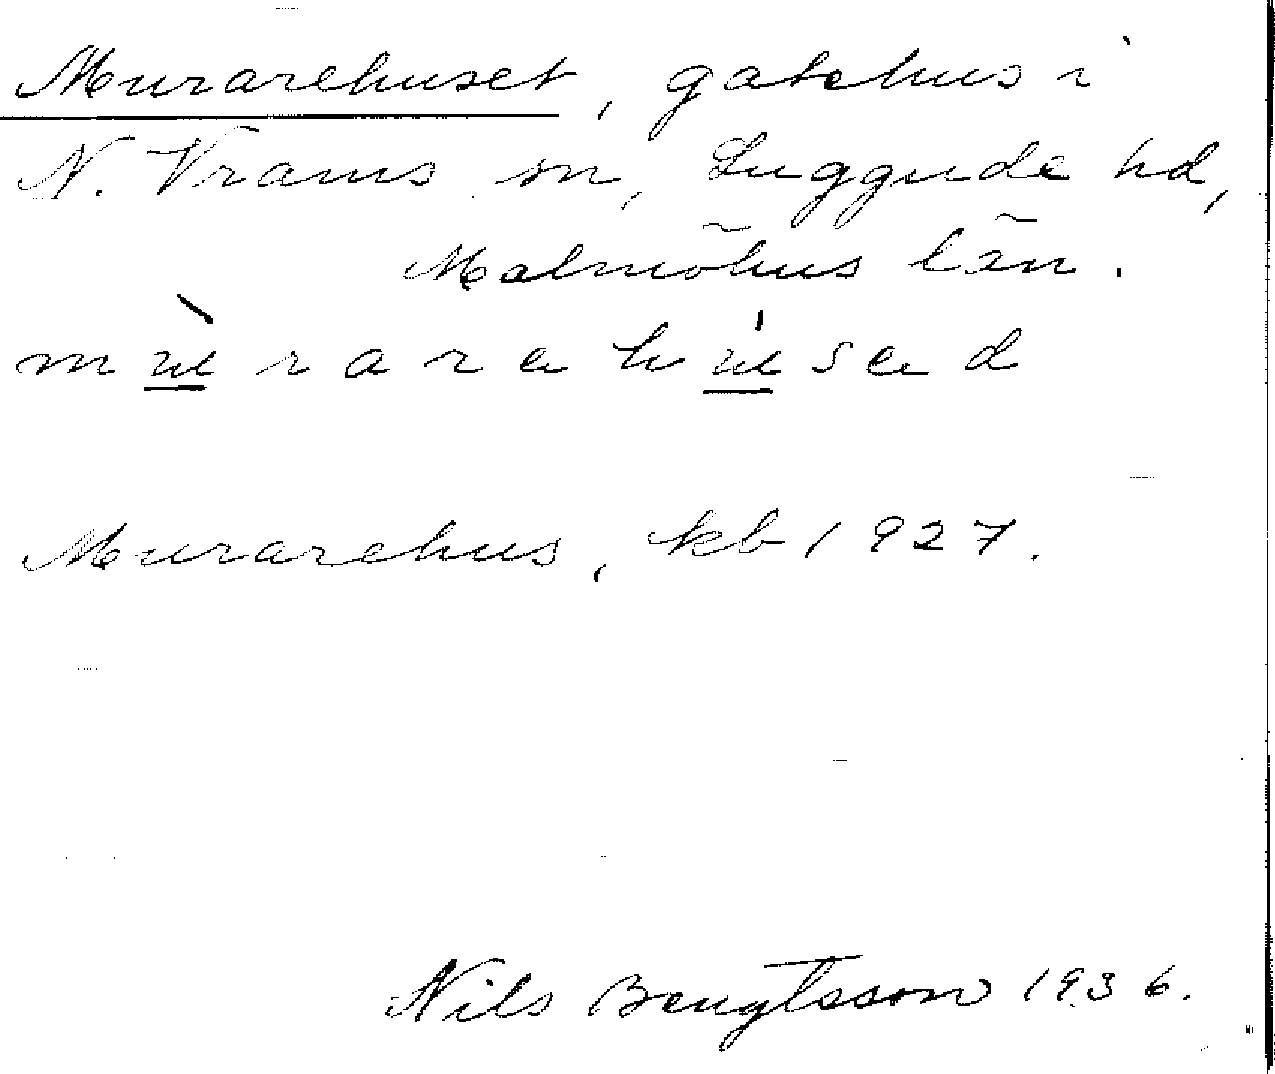 Murarehuset, gatehus i
N. Vrams sn, Luggude hd,
Malmöhus län.
mùrarehúsed
Murarehus, kb 1927.
Nils Bengtsson 1936.